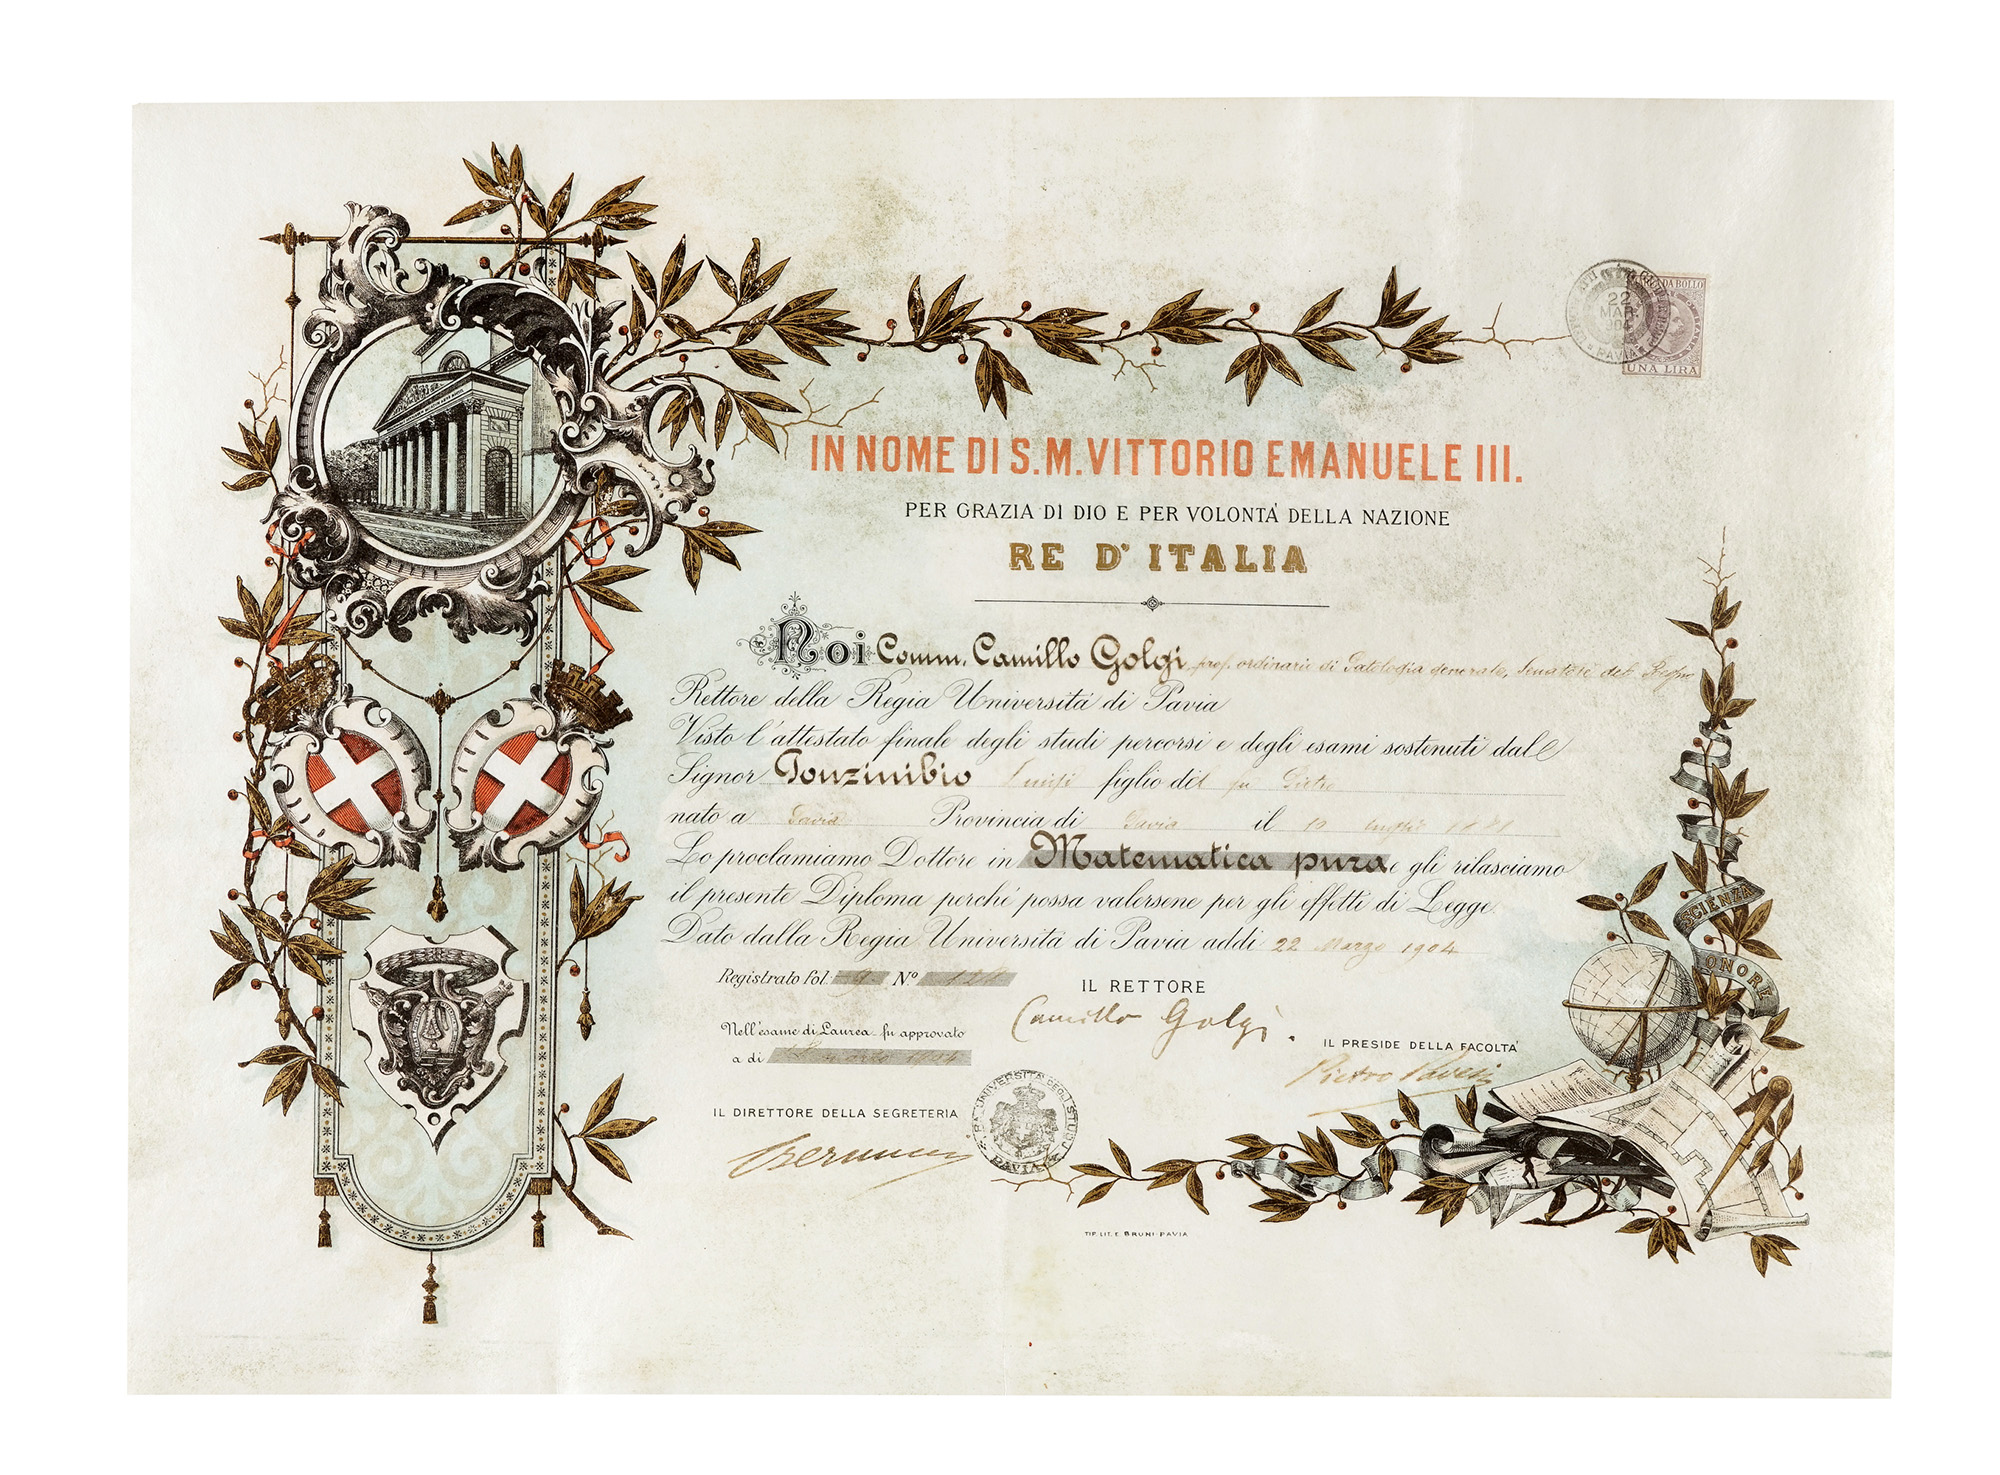 IN NOME DI S.M. VITTORIO EMANUELE III.
PER GRAZIA DI DIO E PER VOLONTÀ DELLA NAZIONE
RE D'ITALIA
Noi Comm. Camillo Golgi prof. ordinario di Patologia generale, Senatore del Regno
Rettore della Regia Università di Pavia
Visto l'attestato finale degli studi percorsi e degli esami sostenuti dal
Signor Gonzinibio Luigi figlio del fu Pietro
nato a Pavia Provincia di Pavia il luglio 1881
Lo proclamiamo Dottore in Matematica pura e gli rilasciamo
il presente Diploma perchè possa valersene per gli effetti di Legge.
Dato dalla Regia Università di Pavia addì 22 Marzo 1904
Registrato fol. 9 N.º 124
IL RETTORE
Camillo Golgi.
Nell'esame di Laurea fu approvato
a dì marzo 1904
IL PRESIDE DELLA FACOLTA'
Pietro Pavesi
IL DIRETTORE DELLA SEGRETERIA
R.A UNIVERSITÀ DEGLI STUDI
PAVIA
TIP. LIT. E. BRUNI-PAVIA
SCIENZA
ONORE
22
MAR
904
PAVIA
MARCA DA BOLLO
UNA LIRA